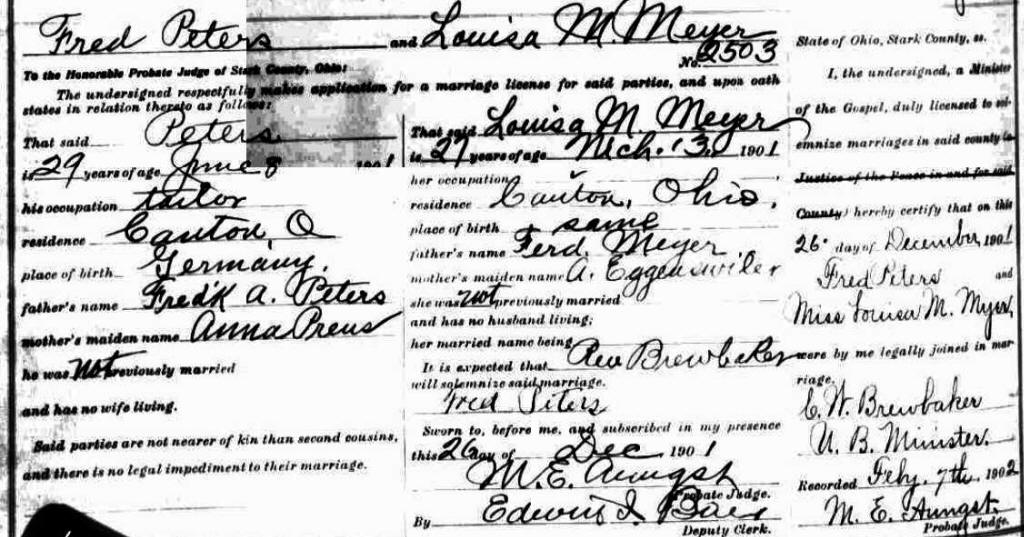 Fred Peters and Louisa M. Meyer
No. 2503
To the Honorable Probate Judge of Stark County, Ohio:
The undersigned respectfully makes application for a marriage license for said parties, and upon oath
states in relation thereto as follows:
That said Peters
is 29 years of age June 8 1901
his occupation tailor
residence Canton, O
place of birth Germany.
father's name Fred'k A. Peters
mother's maiden name Anna Preus
he was not previously married
and has no wife living.
Said parties are not nearer of kin than second cousins,
and there is no legal impediment to their marriage.
That said Louisa M. Meyer
is 27 years of age Mch. 13, 1901
her occupation
residence Canton, Ohio,
place of birth same
father's name Ferd. Meyer
mother's maiden name A. Eggenswiler
she was not previously married
and has no husband living;
her married name being
It is expected that Rev Brewbaker
will solemnize said marriage.
Fred Peters
Sworn to, before me, and subscribed in my presence
this 26 day of Dec 1901
M. E. Aungst
Probate Judge.
By Edwin I.
Deputy Clerk.
State of Ohio, Stark County, ss.
I, the undersigned, a Minister
of the Gospel, duly licensed to sol-
emnize marriages in said county
Justice of the Peace in and for said
County) hereby certify that on this
26. day of December, 1901
Fred Peters and
Miss Louisa M. Myer,
were by me legally joined in mar-
riage.
C. W. Brewbaker
U. B. Minister.
Recorded Feby. 7th, 1902
M. E. Aungst.
Probate Judge.